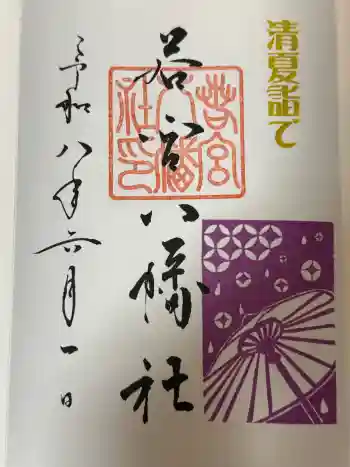 清夏詣で
若宮八幡社
若宮八幡社印
令和八年六月一日